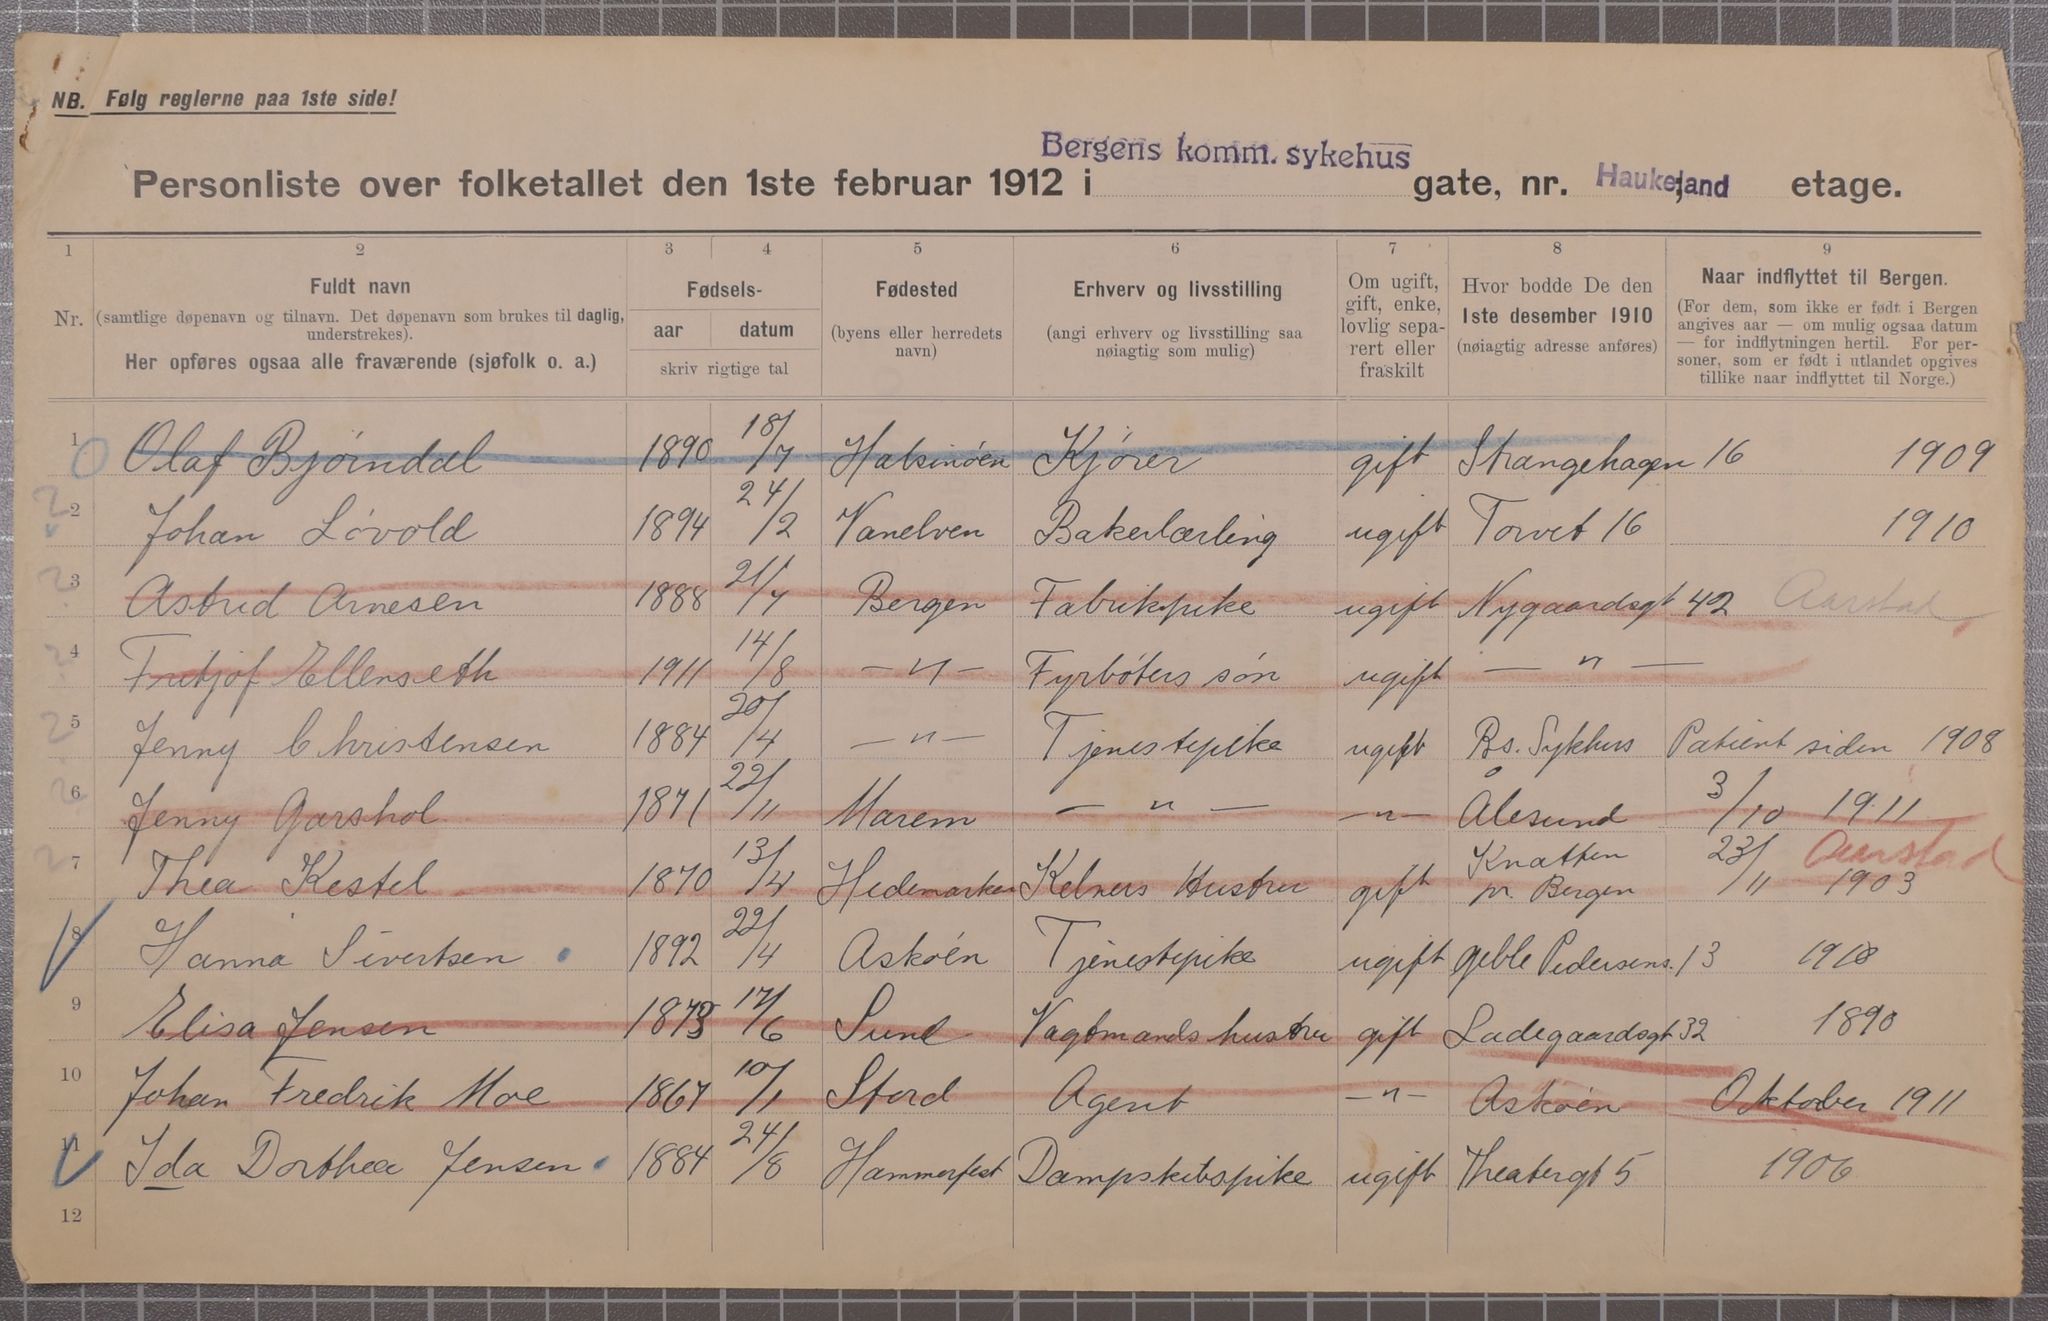 NB. Følg reglerne paa 1ste side!
Bergens komm. sykehus
Personliste over folketallet den 1ste februar 1912 i gate, nr. Haukeland etage.
1 2 3 4 5 6 7 8 9
Nr.
Fuldt navn
(samtlige døpenavn og tilnavn. Det døpenavn som brukes til daglig, understrekes).
Her opføres ogsaa alle fraværende (sjøfolk o. a.)
Fødsels-
aar datum
skriv rigtige tal
Fødested
(byens eller herredets
navn)
Erhverv og livsstilling
(angi erhverv og livsstilling saa
nøiagtig som mulig)
Om ugift,
gift, enke,
lovlig sepa-
rert eller
fraskilt
Hvor bodde De den
1ste desember 1910
(nøiagtig adresse anføres)
Naar indflyttet til Bergen.
(For dem, som ikke er født i Bergen
angives aar — om mulig ogsaa datum
— for indflytningen hertil. For per-
soner, som er født i utlandet opgives
tillike naar indflyttet til Norge.)
1 Olaf Bjørndal 1890 18/7 Halsinöen Kjører gift Strangehagen 16 1909
2 Johan Løvold 1894 24/2 Vanelven Bakerlærling ugift Torvet 16 1910
3 Astrid Arnesen 1888 21/7 Bergen Fabrikpike ugift Nygaardsgt 42 Aarstad
4 Fritjof Ellenseth 1911 14/8 — " — Fyrbøters søn ugift — " —
5 Jenny Christensen 1884 20/4 — " — Tjenestepike ugift Bs. Sykhus Patient siden 1908
6 Jenny Garshol 1871 22/11 Marem — " — — " — Ålesund 3/10 1911
7 Thea Kestel 1870 13/4 Hedemarken Kelners Hustru gift Knatten pr. Bergen 23/11 1903 Aarstad
8 Hanna Sivertsen 1892 22/4 Askøen Tjenestepike ugift Geble Pedersens. 13 1910
9 Elisa Jensen 1873 17/6 Sund Vagtmands hustru gift Ladegaardsgt 32 1890
10 Johan Fredrik Moe 1867 10/1 Stord Agent — " — Askøen Oktober 1911
11 Ida Dorthea Jensen 1884 24/8 Hammerfest Dampskibspike ugift Theatergt 5 1906
12